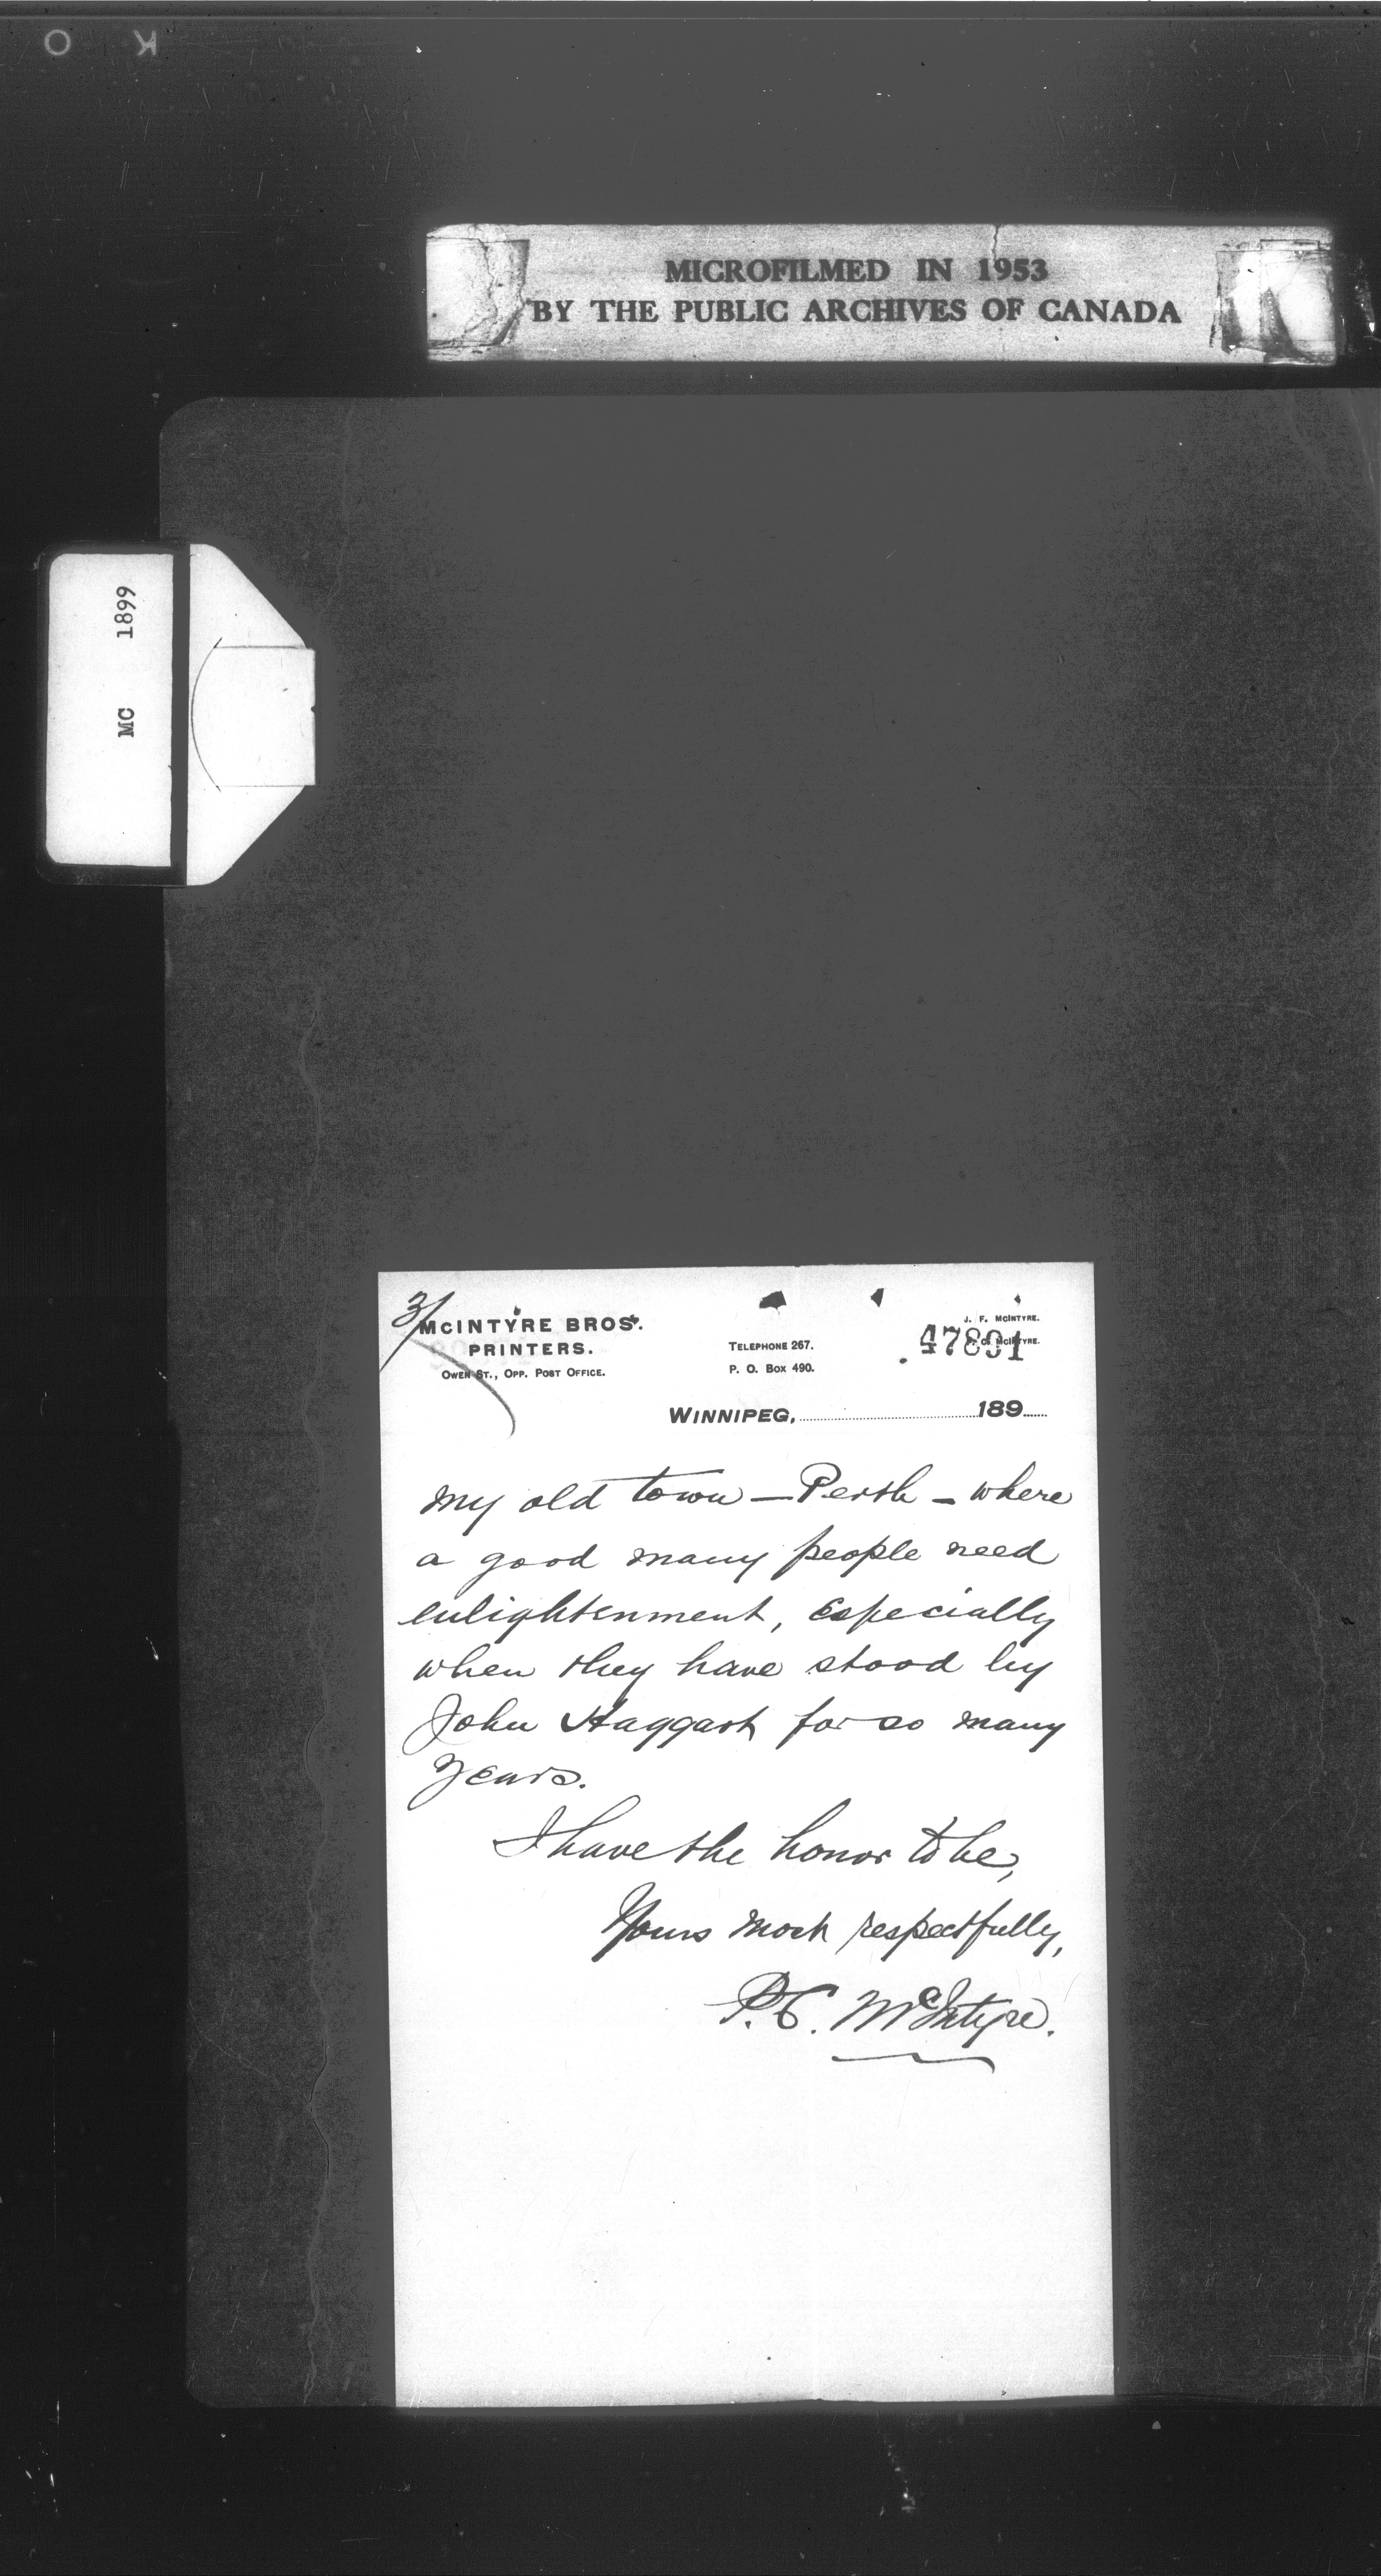 O K
MICROFILMED IN 1953
BY THE PUBLIC ARCHIVES OF CANADA
MC 1899
3/
MCINTYRE BROS.
PRINTERS.
OWEN ST., OPP. POST OFFICE.
TELEPHONE 267.
P. O. BOX 490.
J. F. MCINTYRE.
MCINTYRE.
47891
WINNIPEG, 189
my old town — Perth — where
a good many people need
enlightenment, especially
when they have stood by
John Haggart for so many
years.
I have the honor to be,
Yours most respectfully,
P.C. McIntyre.